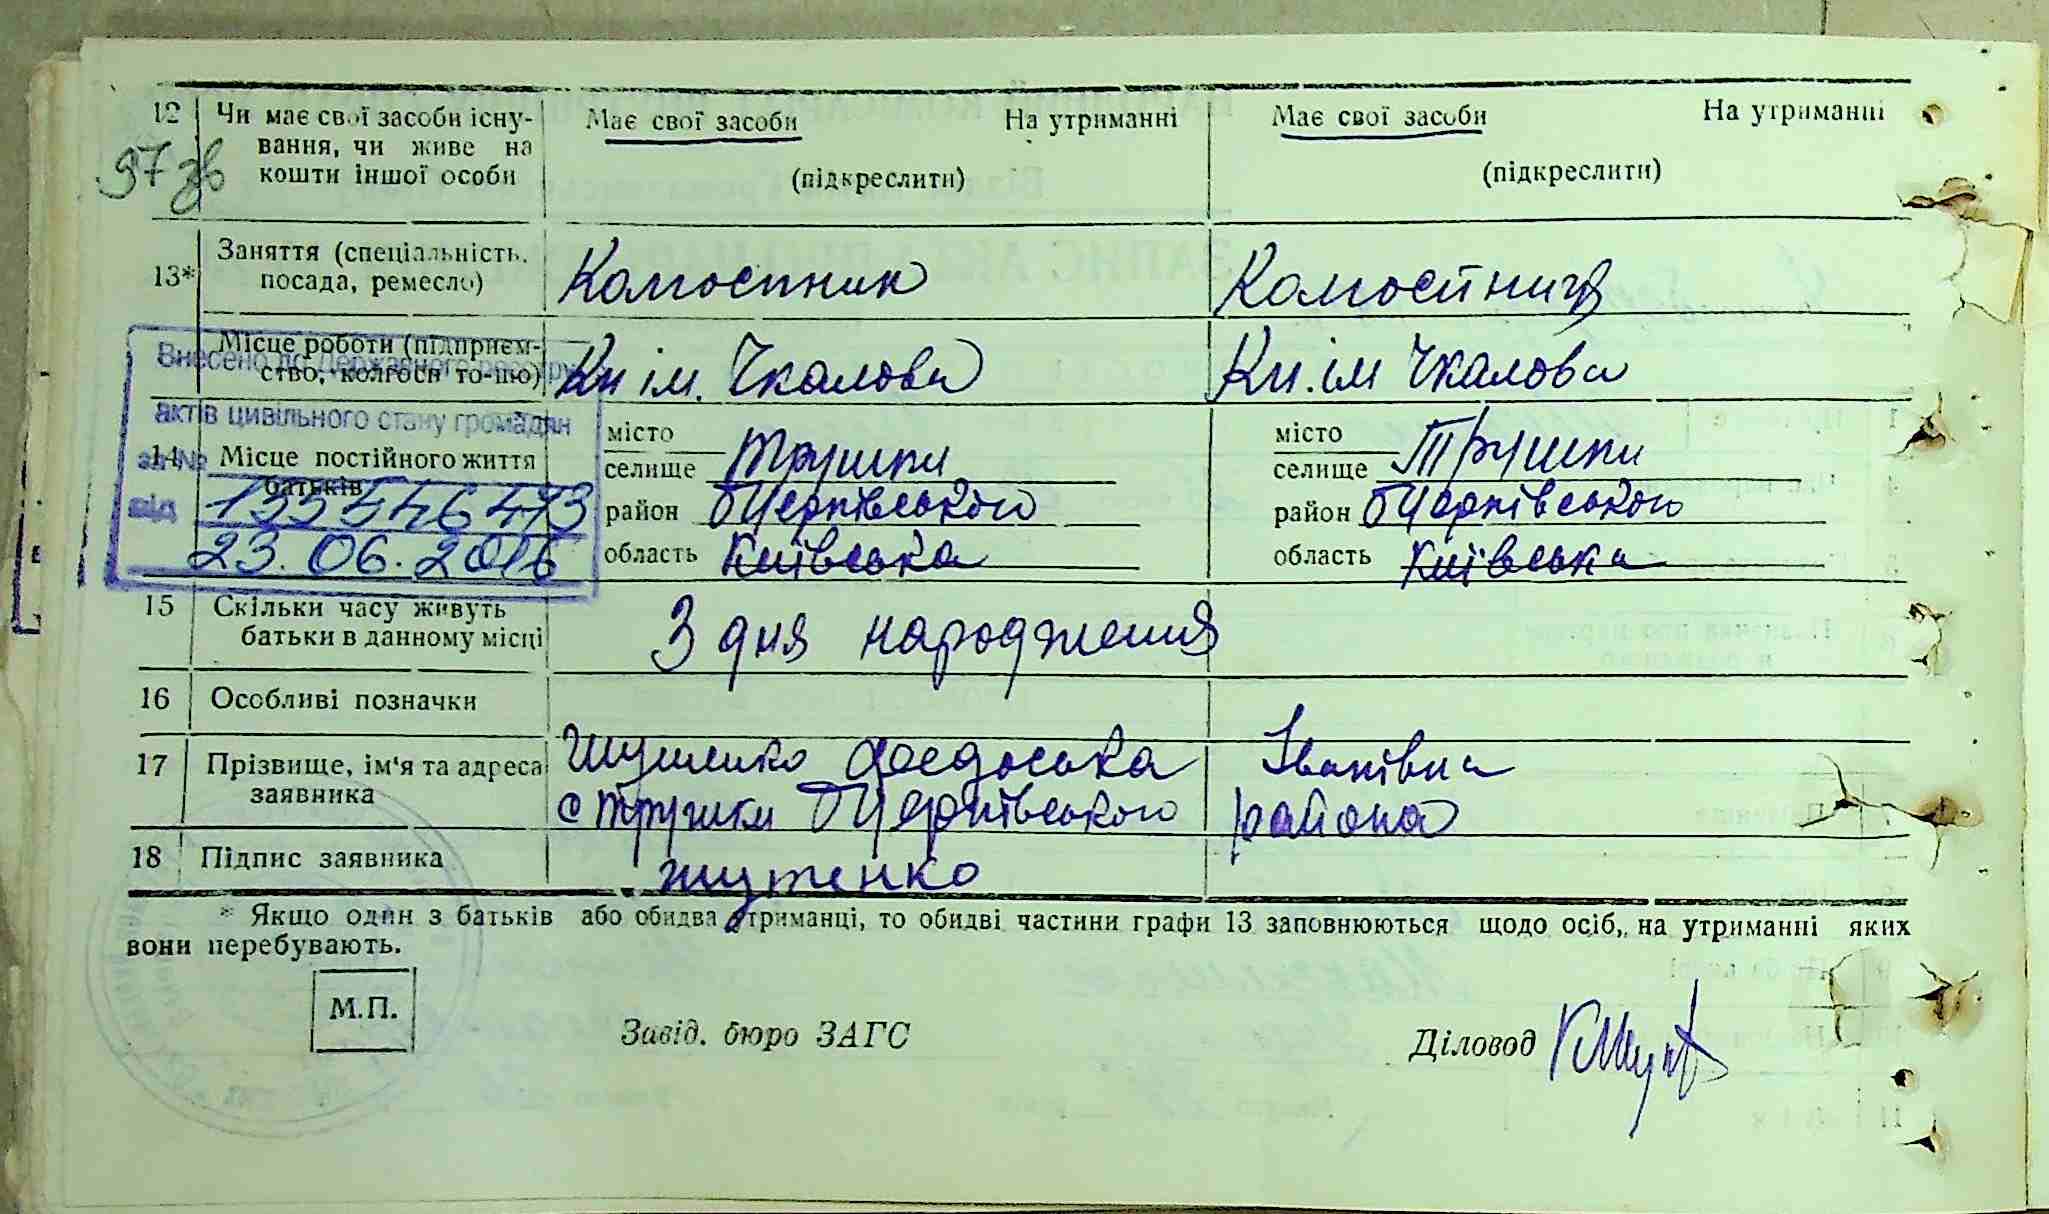 12 Чи має свої засоби існу- Має свої засоби На утриманні Має свої засоби На утриманні
вання, чи живе на
97 зв кошти іншої особи (підкреслити) (підкреслити)
13* Заняття (спеціальність, Колгоспник Колгоспниця
посада, ремесло)
Місце роботи (підприєм- Кп ім. Чкалова Кп. ім Чкалова
ство, колгосп то-що)
Внесено до Державного реєстру
актів цивільного стану громадян
за №
від 23.06.2016
14 Місце постійного життя
батьків
місто місто
селище Трушки селище Трушки
район БЦерківського район БЦерківського
область Київська область Київська
15 Скільки часу живуть З дня народження
батьки в данному місці
16 Особливі позначки
17 Прізвище, ім'я та адреса Федоська Іванівна
заявника с Трушки БЦерківського района
18 Підпис заявника
* Якщо один з батьків або обидва утриманці, то обидві частини графи 13 заповнюються щодо осіб, на утриманні яких
вони перебувають.
М.П.
Завід. бюро ЗАГС Діловод